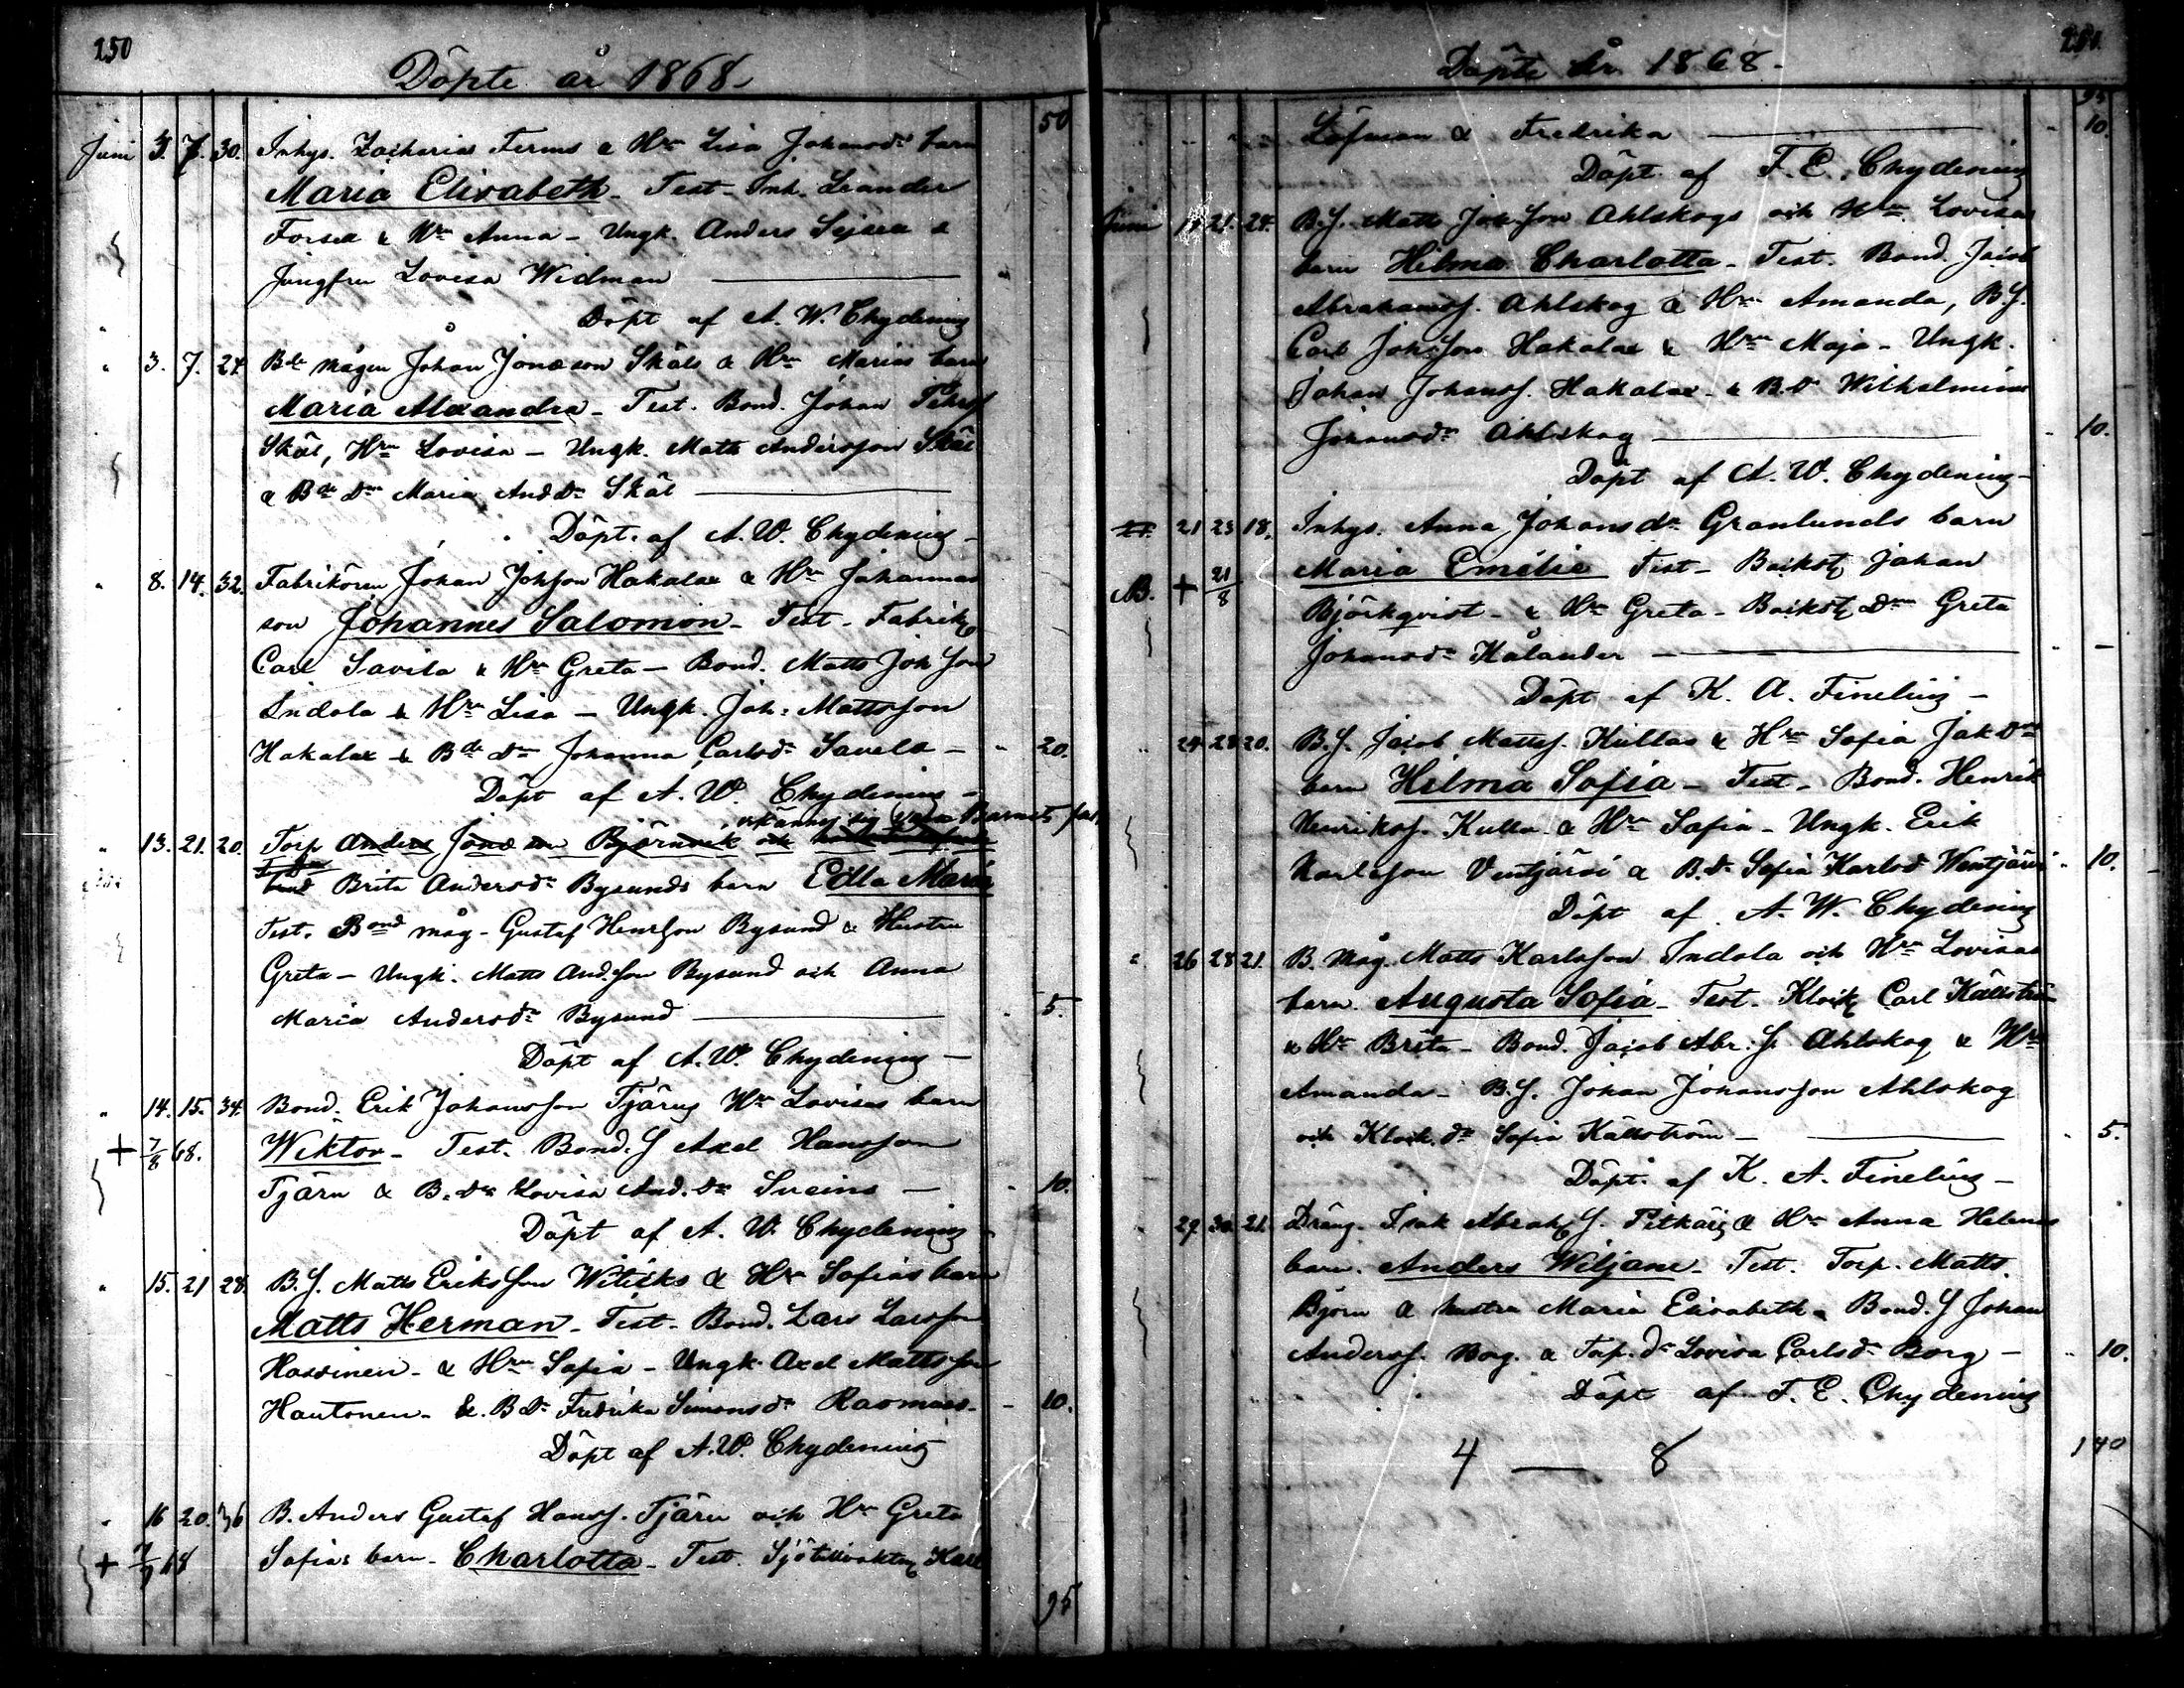 250
Döpte år 1868
50
Juni 3. 7. 30. Inhys. Zacharias Ferms & Hru Lisa Johansdr barn
Maria Elisabeth - Test. Inh. Leander
Forsell & Hru Anna - Ungk. Anders Sejsea &
Jungfru Lovisa Widman
Döpt af A. W. Chydenius
" 3. 7. 24. Bde mågen Johan Jonasson Skåls & Hru Marias barn
Maria Alexandra - Test. Bond. Johan Pehrs.
Skål, Hru Lovisa - Ungk. Matts Andersson Skål
& Bde Dr Maria And.Dr Skål
Döpt. af A. W. Chydenius -
" 8. 14. 32. Fabrikören Johan Johsson Hakalax & Hru Johannas
son Johannes Salomon - Test. Fabrik.
Carl Savela & Hru Greta - Bond. Matts Joh.son
Indola & Hru Lisa - Ungk. Joh: Mattsson
Hakalax & Bde Dr Johanna Carlsdr Savela - " 20.
Döpt af A. W. Chydenius -
erkänner sig vara Barnets far,
" 13. 21. 20. Torp Anders Jonasson Björnvik och
Brita Andersdr Bysunds barn Edla Maria
Test. Bond måg. Gustaf Henrson Bysund & Hustru
Greta - Ungk. Matts And.son Bysund och Anna
Maria Andersdr Bysund . 5.
Döpt af A. W. Chydenius -
" 14. 15. 34. Bond. Erik Johansson Tjärus Hru Lovisas barn
+ 7/8 68. Wiktor - Test. Bond. S Axel Hansson
Tjäru & B. Dr Lovisa And. Dr Sveins - 10.
Döpt af A. W. Chydenius -
" 15. 21 28. B. S. Matts Eriksson Witicks & Hru Sofias barn
Matts Herman - Test. Bond. Lars Larsson
Hassinen - & Hru Sofia - Ungk. Axel Mattsson
Hautonen - & B Dr Fredrika Simonsdr Rasmus - - 10.
Döpt af A. W. Chydenius
" 16 20. 36 B. Anders Gustaf Hanss. Tjäru och Hru Greta
+ 7/7 68 Sofias barn - Charlotta - Test. Sjötullvakt. Karl
95
Döpte år 1868 -
95
Löfman & Fredrika - 10.
Döpt. af F. E. Chydenius
Juni 19 21. 24. B. S. Matts Joh.son Ahlskogs och Hru Lovisas
barn Hilma Charlotta - Test. Bond. Jacob
Abrahamss. Ahlskog & Hru Amanda, B. S.
Carl Johsson Hakalax & Hru Maja - Ungk.
Johan Johanss. Hakalax - & B. Dr Wilhelmina
Johansdr Ahlskog - 10.
Döpt af A. W. Chydenius -
21 23 18. Inhys. Anna Johansdr Granlunds barn
B. + 21/8 Maria Emilie Test - Backst. Johan
Björkqvist - & Hru Greta - Backst. Dr Greta
Johansdr Kålander - -
Döpt af K. A. Finelius -
" 24 28 20. B. S. Jacob Mattss. Kullas & Hru Sofia Jak Drs
barn Hilma Sofia - Test - Bond. Henrik
Henrikss. Kulla & Hru Sofia - Ungk. Erik
Karlsson Ventjärvi & B. Dr Sofia Karlsd Wentjärvi - 10.
Döpt af A. W. Chydenius
" 26 28 21. B. Måg. Matts Karlsson Indola och Hru Lovisas
barn. Augusta Sofia - Test. Klock. Carl Källström
& Hru Brita - Bond. Jacob Abr. S. Ahlskog & Hru
Amanda - B. S. Johan Johansson Ahlskog
och Klock. dr Sofia Källström - . 5.
Döpt. af K. A. Finelius -
29 30. 21. Dräng. Isak Abrah. S. Pitkäjs & Hru Anna Helenas
barn. Anders Wiljam - Test. Torp. Matts
Björn & hustru Maria Elisabeth - Bond. S Johan
Anderss. Borg. & Torp. Dr Lovisa Carlsdr Borg - . 10.
Döpt af F. E. Chydenius
4 — 8
140